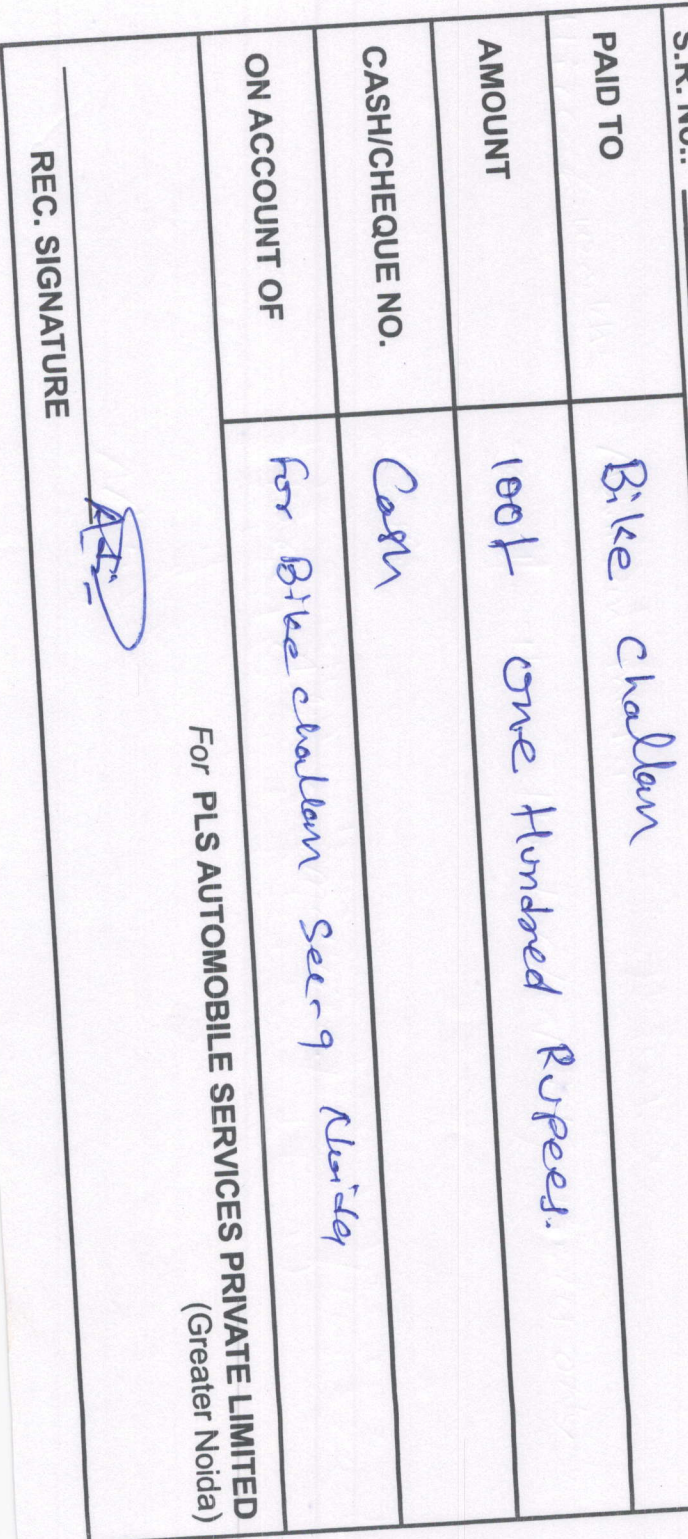 S.R. NO.:
PAID TO Bike Challan
AMOUNT 100/- One Hundred Rupees.
CASH/CHEQUE NO. Cash
ON ACCOUNT OF for Bike challan Sec-9 Noida
For PLS AUTOMOBILE SERVICES PRIVATE LIMITED
(Greater Noida)
REC. SIGNATURE